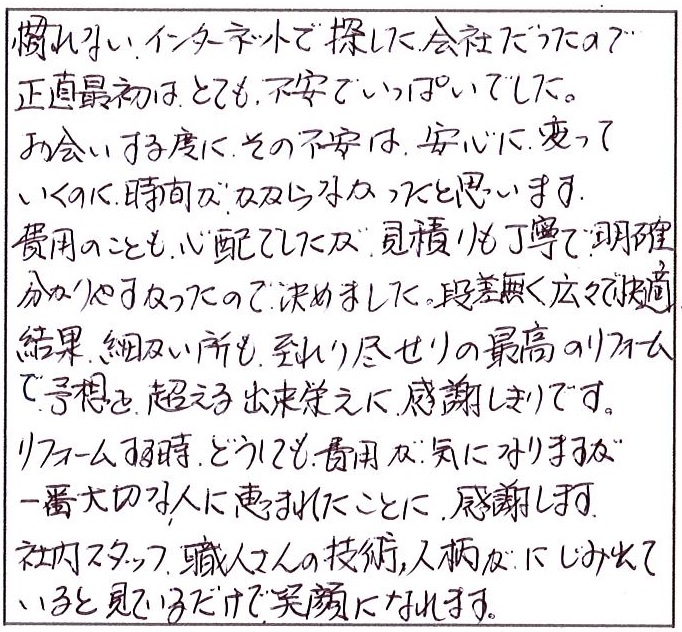 慣れない、インターネットで探した会社だったので
正直最初は、とても、不安でいっぱいでした。
お会いする度に、その不安は、安心に、変って
いくのに、時間が、かからなかったと思います。
費用のことも、心配でしたが、見積りも丁寧で、明確
分かりやすかったので、決めました。段差無く広々で快適
結果、細かい所も、至れり尽せりの最高のリフォーム
で、予想を、超える出来栄えに、感謝しきりです。
リフォームする時、どうしても、費用が、気になりますが
一番大切な人に恵まれたことに、感謝します。
社内スタッフ、職人さんの技術,人柄が、にじみ出て
いると見ているだけで笑顔になれます。